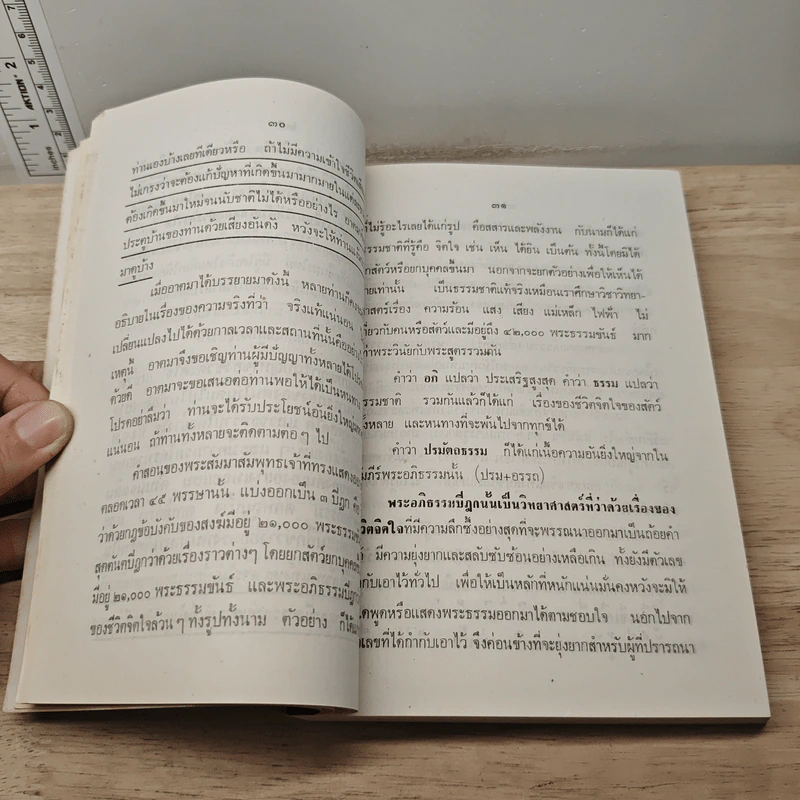 ๓๐
ท่านเองบ้างเลยทีเดียวหรือ ถ้าไม่มีความเข้าใจชีวิต
ไม่เกรงว่าจะต้องแก้ปัญหาที่เกิดขึ้นมามากมายใน
ต้องเกิดขึ้นมาใหม่จนนับชาติไม่ได้หรืออย่างไร
ประตูบ้านของท่านด้วยเสียงอันดัง หวังจะให้ท่าน
มาดูบ้าง
เมื่ออาตมาได้บรรยายมาดังนี้ หลายท่านก็คง
อธิบายในเรื่องของความจริงที่ว่า จริงแท้แน่นอน
เปลี่ยนแปลงไปได้ด้วยกาลเวลาและสถานที่นั้นคืออย่าง
เหตุนี้ อาตมาจึงขอเชิญท่านผู้มีปัญญาทั้งหลายได้
ด้วยดี อาตมาจะขอเสนอต่อท่านพอให้ได้เป็นหนทาง
โปรดอย่าลืมว่า ท่านจะได้รับประโยชน์อันยิ่งใหญ่
แน่นอน ถ้าท่านทั้งหลายจะติดตามต่อๆ ไป
คำสอนของพระสัมมาสัมพุทธเจ้าที่ทรงแสดง
ตลอดเวลา ๔๕ พรรษานั้น แบ่งออกเป็น ๓ ปิฎก คือ
ว่าด้วยกฎข้อบังคับของสงฆ์มีอยู่ ๒๑,๐๐๐ พระธรรม
สุตตันตปิฎกว่าด้วยเรื่องราวต่างๆ โดยยกสัตว์ยกบุคคล
มีอยู่ ๒๑,๐๐๐ พระธรรมขันธ์ และพระอภิธรรมปิฎก
ของชีวิตจิตใจล้วนๆ ทั้งรูปทั้งนาม ตัวอย่าง ก็ได้
๓๑
ไม่รู้อะไรเลยได้แก่รูป คือสสารและพลังงาน กับนามก็ได้แก่
ธรรมชาติที่รู้คือ จิตใจ เช่น เห็น ได้ยิน เป็นต้น ทั้งนี้โดยมิได้
สัตว์หรือยกบุคคลขึ้นมา นอกจากจะยกตัวอย่างเพื่อให้เห็นได้
เท่านั้น เป็นธรรมชาติแท้จริงเหมือนเราศึกษาวิชาวิทยา-
ศาสตร์เรื่อง ความร้อน แสง เสียง แม่เหล็ก ไฟฟ้า ไม่
เกี่ยวกับคนหรือสัตว์และมีอยู่ถึง ๔๒,๐๐๐ พระธรรมขันธ์ มาก
พระวินัยกับพระสูตรรวมกัน
คำว่า อภิ แปลว่า ประเสริฐสูงสุด คำว่า ธรรม แปลว่า
ธรรมชาติ รวมกันแล้วก็ได้แก่ เรื่องของชีวิตจิตใจของสัตว์
ทั้งหลาย และหนทางที่จะพ้นไปจากทุกข์ได้
คำว่า ปรมัตถธรรม ก็ได้แก่เนื้อความอันยิ่งใหญ่จากใน
คัมภีร์พระอภิธรรมนั้น (ปรม+อรรถ)
พระอภิธรรมปิฎกนั้นเป็นวิทยาศาสตร์ที่ว่าด้วยเรื่องของ
ชีวิตจิตใจที่มีความลึกซึ้งอย่างสุดที่จะพรรณนาออกมาเป็นถ้อยคำ
มีความยุ่งยากและสลับซับซ้อนอย่างเหลือเกิน ทั้งยังมีตัวเลข
กำกับเอาไว้ทั่วไป เพื่อให้เป็นหลักที่หนักแน่นมั่นคงหวังจะมิให้
พูดหรือแสดงพระธรรมออกมาได้ตามชอบใจ นอกไปจาก
เลขที่ได้กำกับเอาไว้ จึงค่อนข้างที่จะยุ่งยากสำหรับผู้ที่ปรารถนา
inches
1
2
AKTION
7